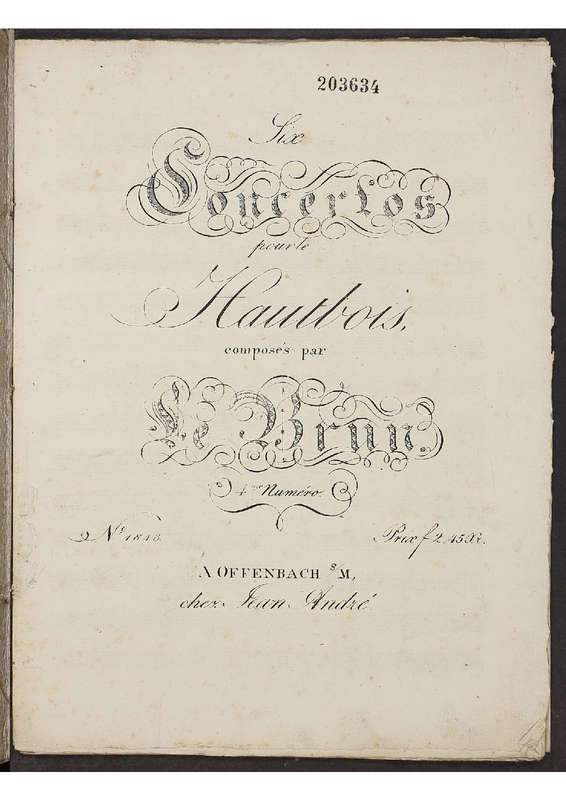 203634
Six
Concertos
pour le
Hautbois.
composés par
Le Brun.
4me Numéro.
No. 1848. Prix f 2.45 Xr.
À OFFENBACH s/M,
chez Jean André